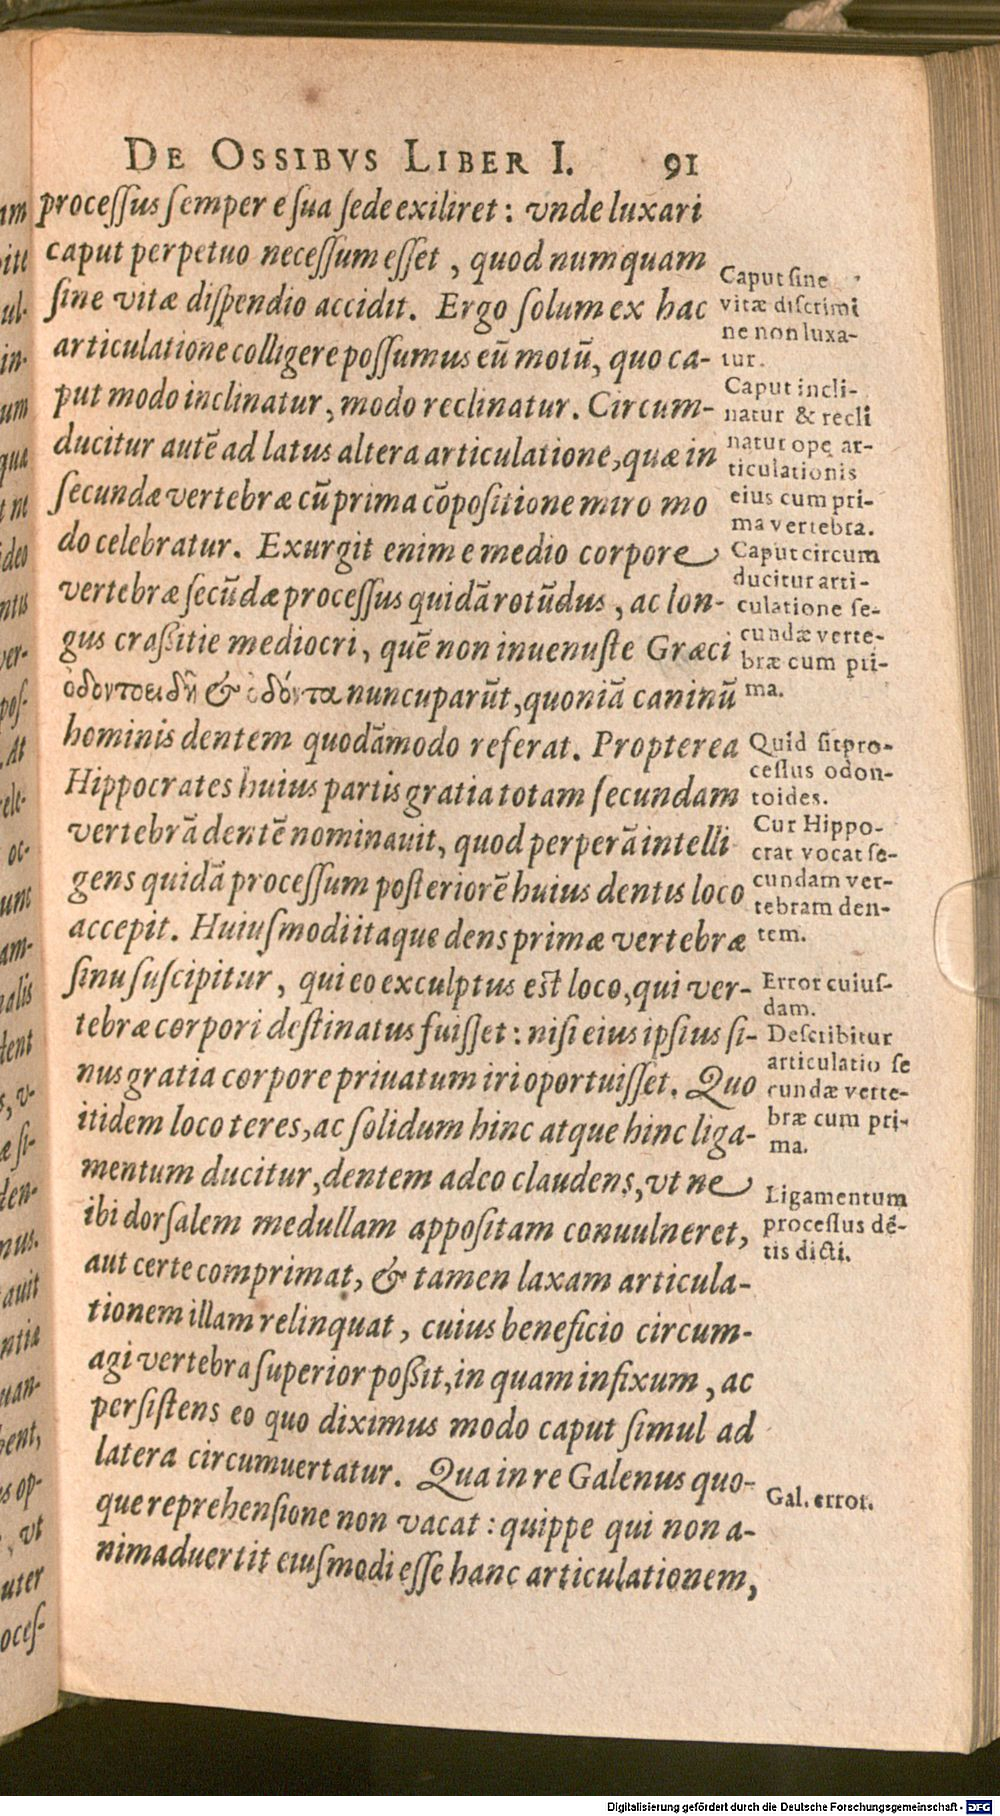 DE OSSIBVS LIBER I. 91
processus semper e sua sede exiliret: vnde luxari
caput perpetuo necessum esset, quod numquam
sine vitæ dispendio accidit. Ergo solum ex hac
articulatione colligere possumus eũ motũ, quo ca-
put modo inclinatur, modo reclinatur. Circum-
ducitur autẽ ad latus altera articulatione, quæ in
secundæ vertebræ cũ prima cõpositione miro mo
do celebratur. Exurgit enim e medio corpore
vertebræ secũdæ processus quidã rotũdus, ac lon-
gus crassitie mediocri, quẽ non inuenuste Græci
ὀδοντοειδῆ & ὀδόντα nuncuparũt, quoniã caninũ
hominis dentem quodãmodo referat. Propterea
Hippocrates huius partis gratia totam secundam
vertebrã dentẽ nominauit, quod perperã intelli
gens quidã processum posteriorẽ huius dentis loco
accepit. Huiusmodi itaque dens primæ vertebræ
sinu suscipitur, qui eo exculptus est loco, qui ver-
tebræ corpori destinatus fuisset: nisi eius ipsius si-
nus gratia corpore priuatum iri oportuisset. Quo
itidem loco teres, ac solidum hinc atque hinc liga-
mentum ducitur, dentem adeo claudens, vt ne
ibi dorsalem medullam appositam conuulneret,
aut certe comprimat, & tamen laxam articula-
tionem illam relinquat, cuius beneficio circum-
agi vertebra superior possit, in quam infixum, ac
persistens eo quo diximus modo caput simul ad
latera circumuertatur. Qua in re Galenus quo-
que reprehensione non vacat: quippe qui non a-
nimaduertit eiusmodi esse hanc articulationem,
Caput sine
vitæ discrimi
ne non luxa-
tur.
Caput incli-
natur & recli
natur ope ar-
ticulationis
eius cum pri-
ma vertebra.
Caput circum
ducitur arti-
culatione se-
cundæ verte-
bræ cum pri-
ma.
Quid sit pro-
cessus odon-
toides.
Cur Hippo-
crat vocat se-
cundam ver-
tebram den-
tem.
Error cuius-
dam.
Describitur
articulatio se
cundæ verte-
bræ cum pri-
ma.
Ligamentum
processus dẽ-
tis dicti.
Gal. error.
am
ite
ul-
in-
um
qua
t ne
ideo
ntis
ver-
pos-
, at
rele-
oc-
unc
am-
nalis
dent
s, v-
æ si-
den-
nus.
tauit
entia
uan-
bent,
os op-
, vt
uter
oces-
Digitalisierung gefördert durch die Deutsche Forschungsgemeinschaft - DFG